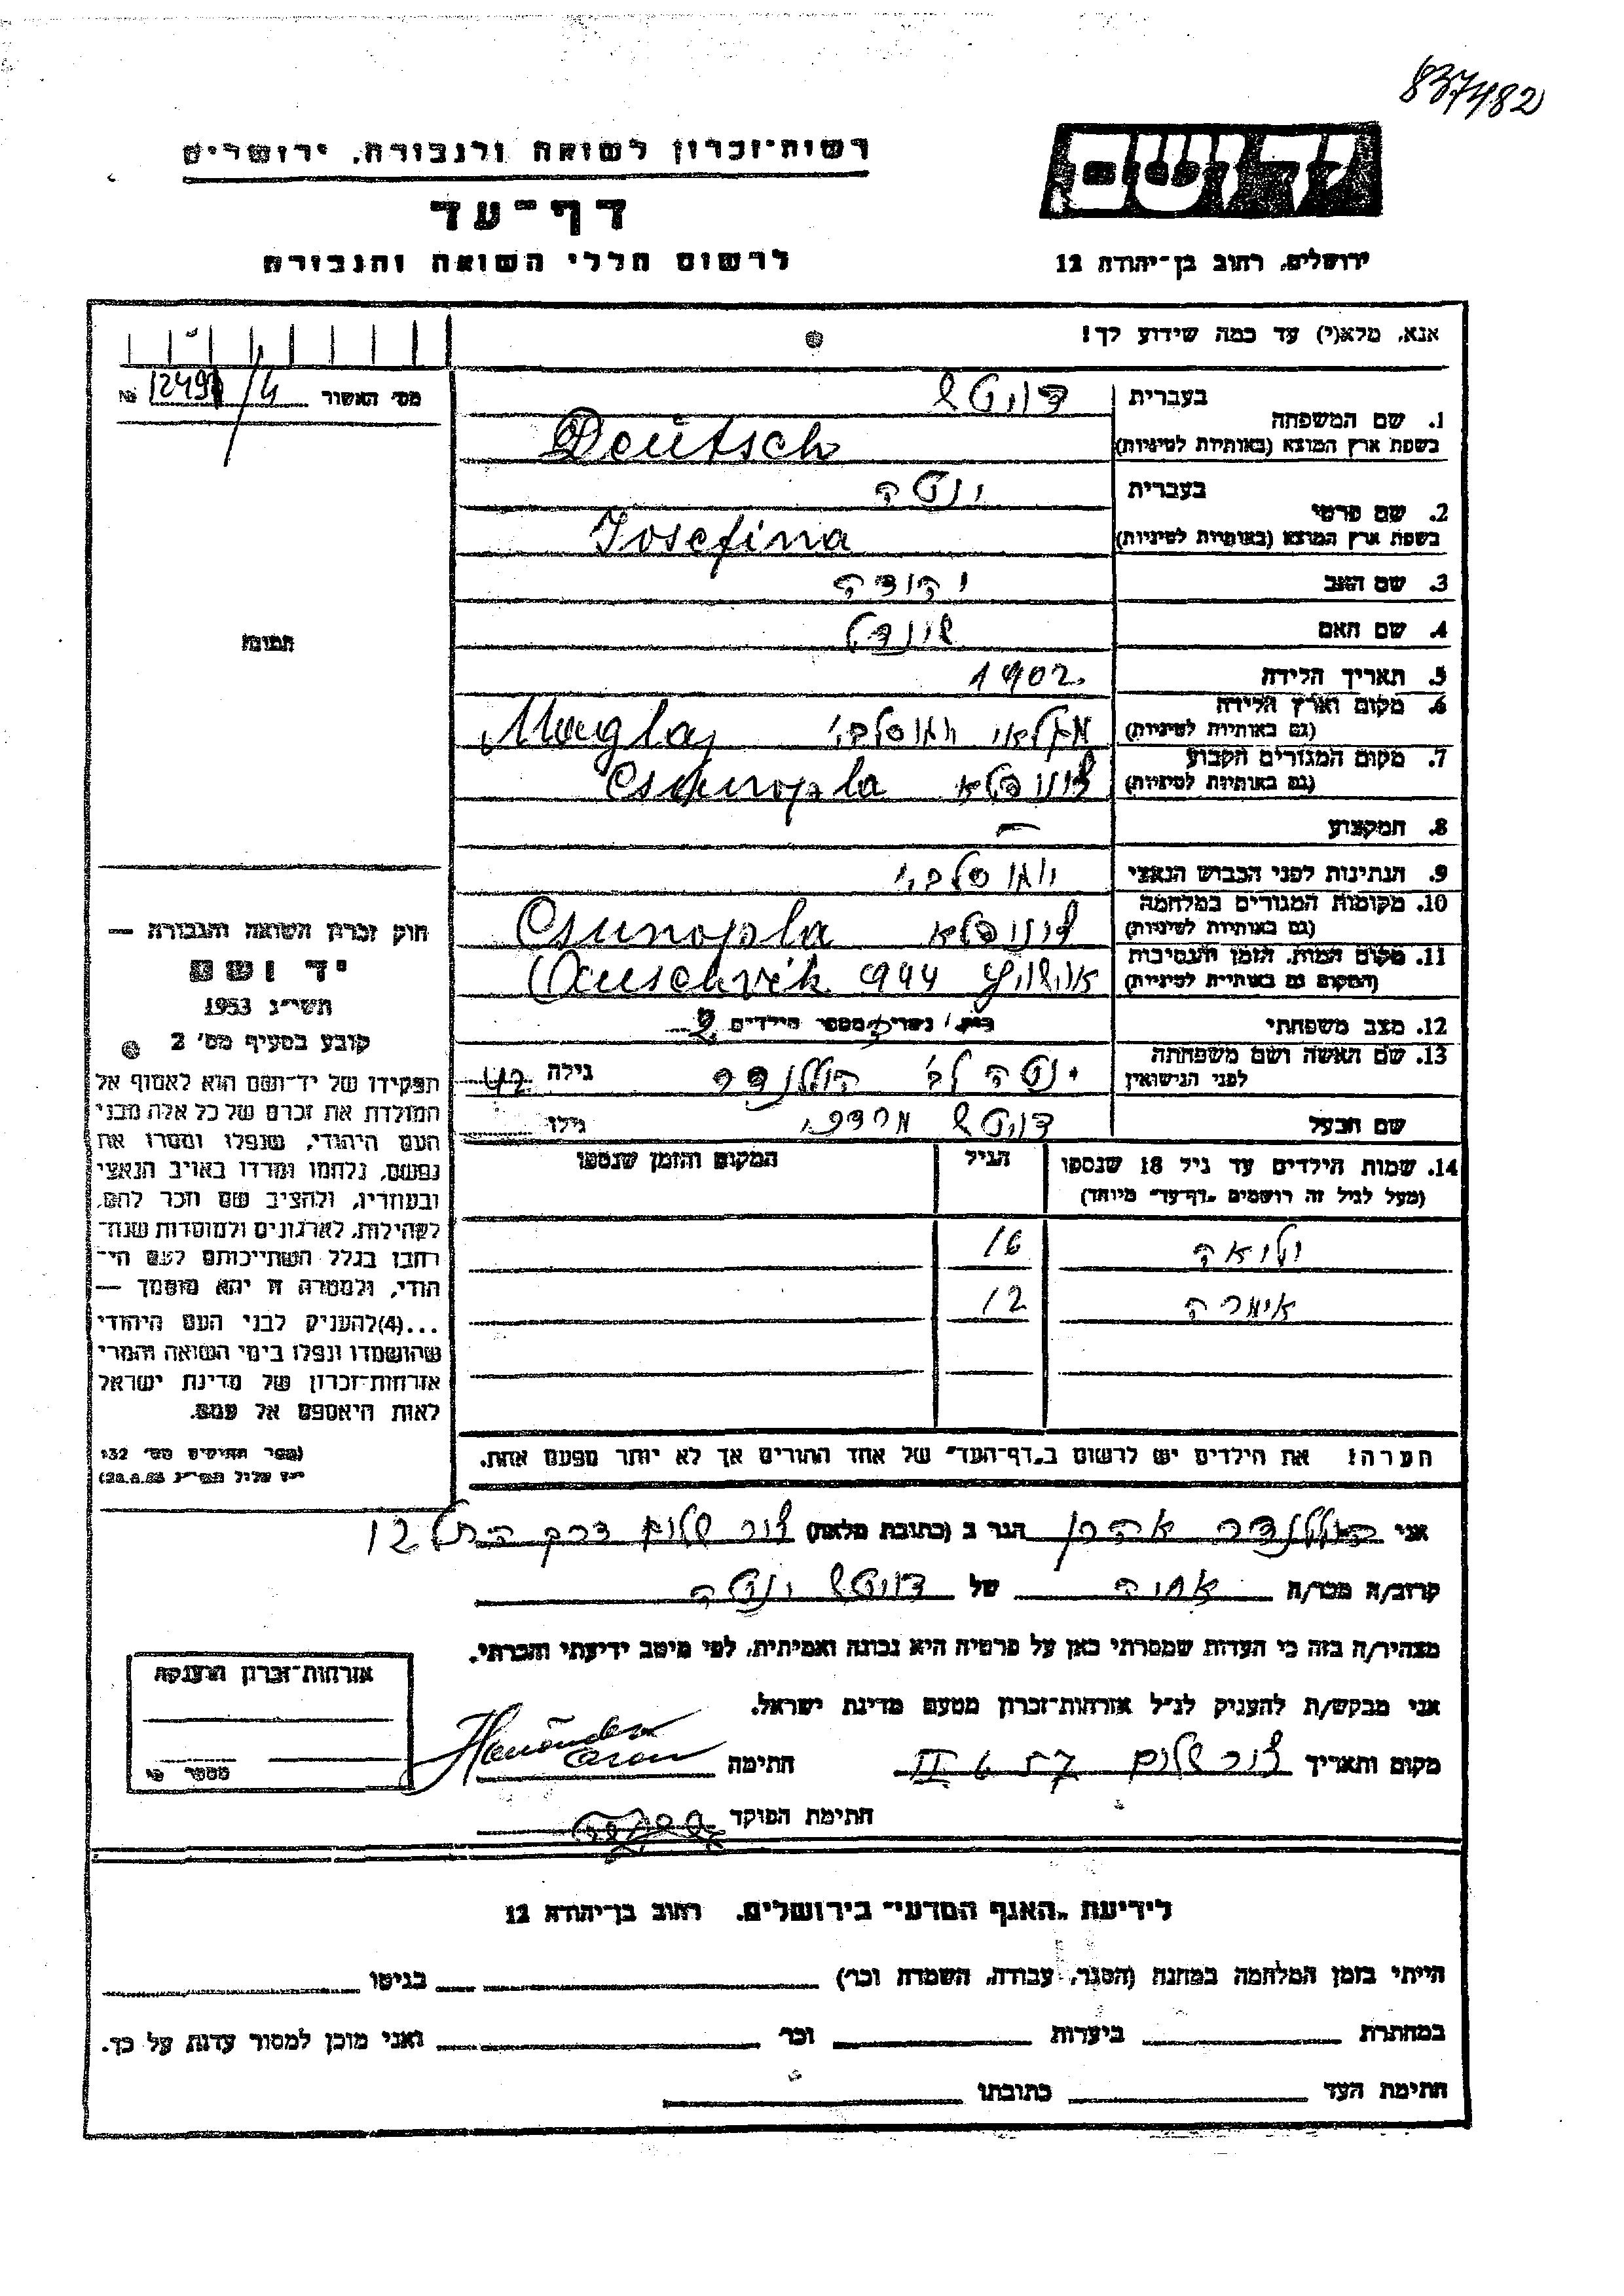 837482
יד ושם
רשות-זכרון לשואה ולגבורה, ירושלים
דף-עד
לרשום חללי השואה והגבורה
ירושלים, רחוב בן-יהודה 12
אנא, מלא(י) עד כמה שידוע לך!
מס' האשור 4/ № 1249
1. שם המשפחה
בעברית דויטש
בשפת ארץ המוצא (באותיות לטיניות) Deutsch
2. שם פרטי
בעברית ינטה
בשפת ארץ המוצא (באותיות לטיניות) Josefina
3. שם האב יהודה
4. שם האם שינדל
5. תאריך הלידה 1902.
6. מקום וארץ הלידה
(גם באותיות לטיניות) Maglaj
7. מקום המגורים הקבוע
(גם באותיות לטיניות)
8. המקצוע —
9. הנתינות לפני הכבוש הנאצי
10. מקומות המגורים במלחמה
(גם באותיות לטיניות) Csunopla
11. מקום המות, הזמן והנסיבות
(המקום גם באותיות לטיניות) 944
12. מצב משפחתי נשוי מספר הילדים 2
13. שם האשה ושם משפחתה
לפני הנישואין ינטה לב הולנדר גילה 42
שם הבעל דויטש מרדכי גילו
14. שמות הילדים עד גיל 18 שנספו הגיל המקום והזמן שנספו
(מעל לגיל זה רושמים "דף-עד" מיוחד)
16
12
הערה! את הילדים יש לרשום ב"דף-העד" של אחד ההורים אך לא יותר מפעם אחת.
התמונה
חוק זכרון השואה והגבורה —
יד ושם
תשי"ג 1953
קובע בסעיף מס' 2
תפקידו של יד-ושם הוא לאסוף אל
המולדת את זכרם של כל אלה מבני
העם היהודי, שנפלו ומסרו את
נפשם, נלחמו ומרדו באויב הנאצי
ובעוזריו, ולהציב שם וזכר להם,
לקהילות, לארגונים ולמוסדות שנח-
רבו בגלל השתייכותם לעם הי-
הודי, ולמטרה זו יהא מוסמך —
...(4) להעניק לבני העם היהודי
שהושמדו ונפלו בימי השואה והמרי
אזרחות-זכרון של מדינת ישראל
לאות היאספם אל עמם.
(ספר החוקים מס' 132
אני הולנדר אהרן הגר ב (כתובת מלאה) צור שלום דרך התל 12
קרוב/ה מכר/ה אחיה של דויטש ינטה
מצהיר/ה בזה כי העדות שמסרתי כאן על פרטיה היא נכונה ואמיתית, לפי מיטב ידיעתי והכרתי.
אני מבקש/ת להעניק לנ"ל אזרחות-זכרון מטעם מדינת ישראל.
מקום ותאריך צור שלום II 6 57 חתימה
חתימת הפוקד
אזרחות-זכרון הוענקה
מספר
לידיעת "האגף המדעי" בירושלים, רחוב בן-יהודה 12
הייתי בזמן המלחמה במחנה (הסגר, עבודה, השמדה וכו') בגיטו
במחתרת ביערות וכו' ואני מוכן למסור עדות על כך.
חתימת העד כתובתו